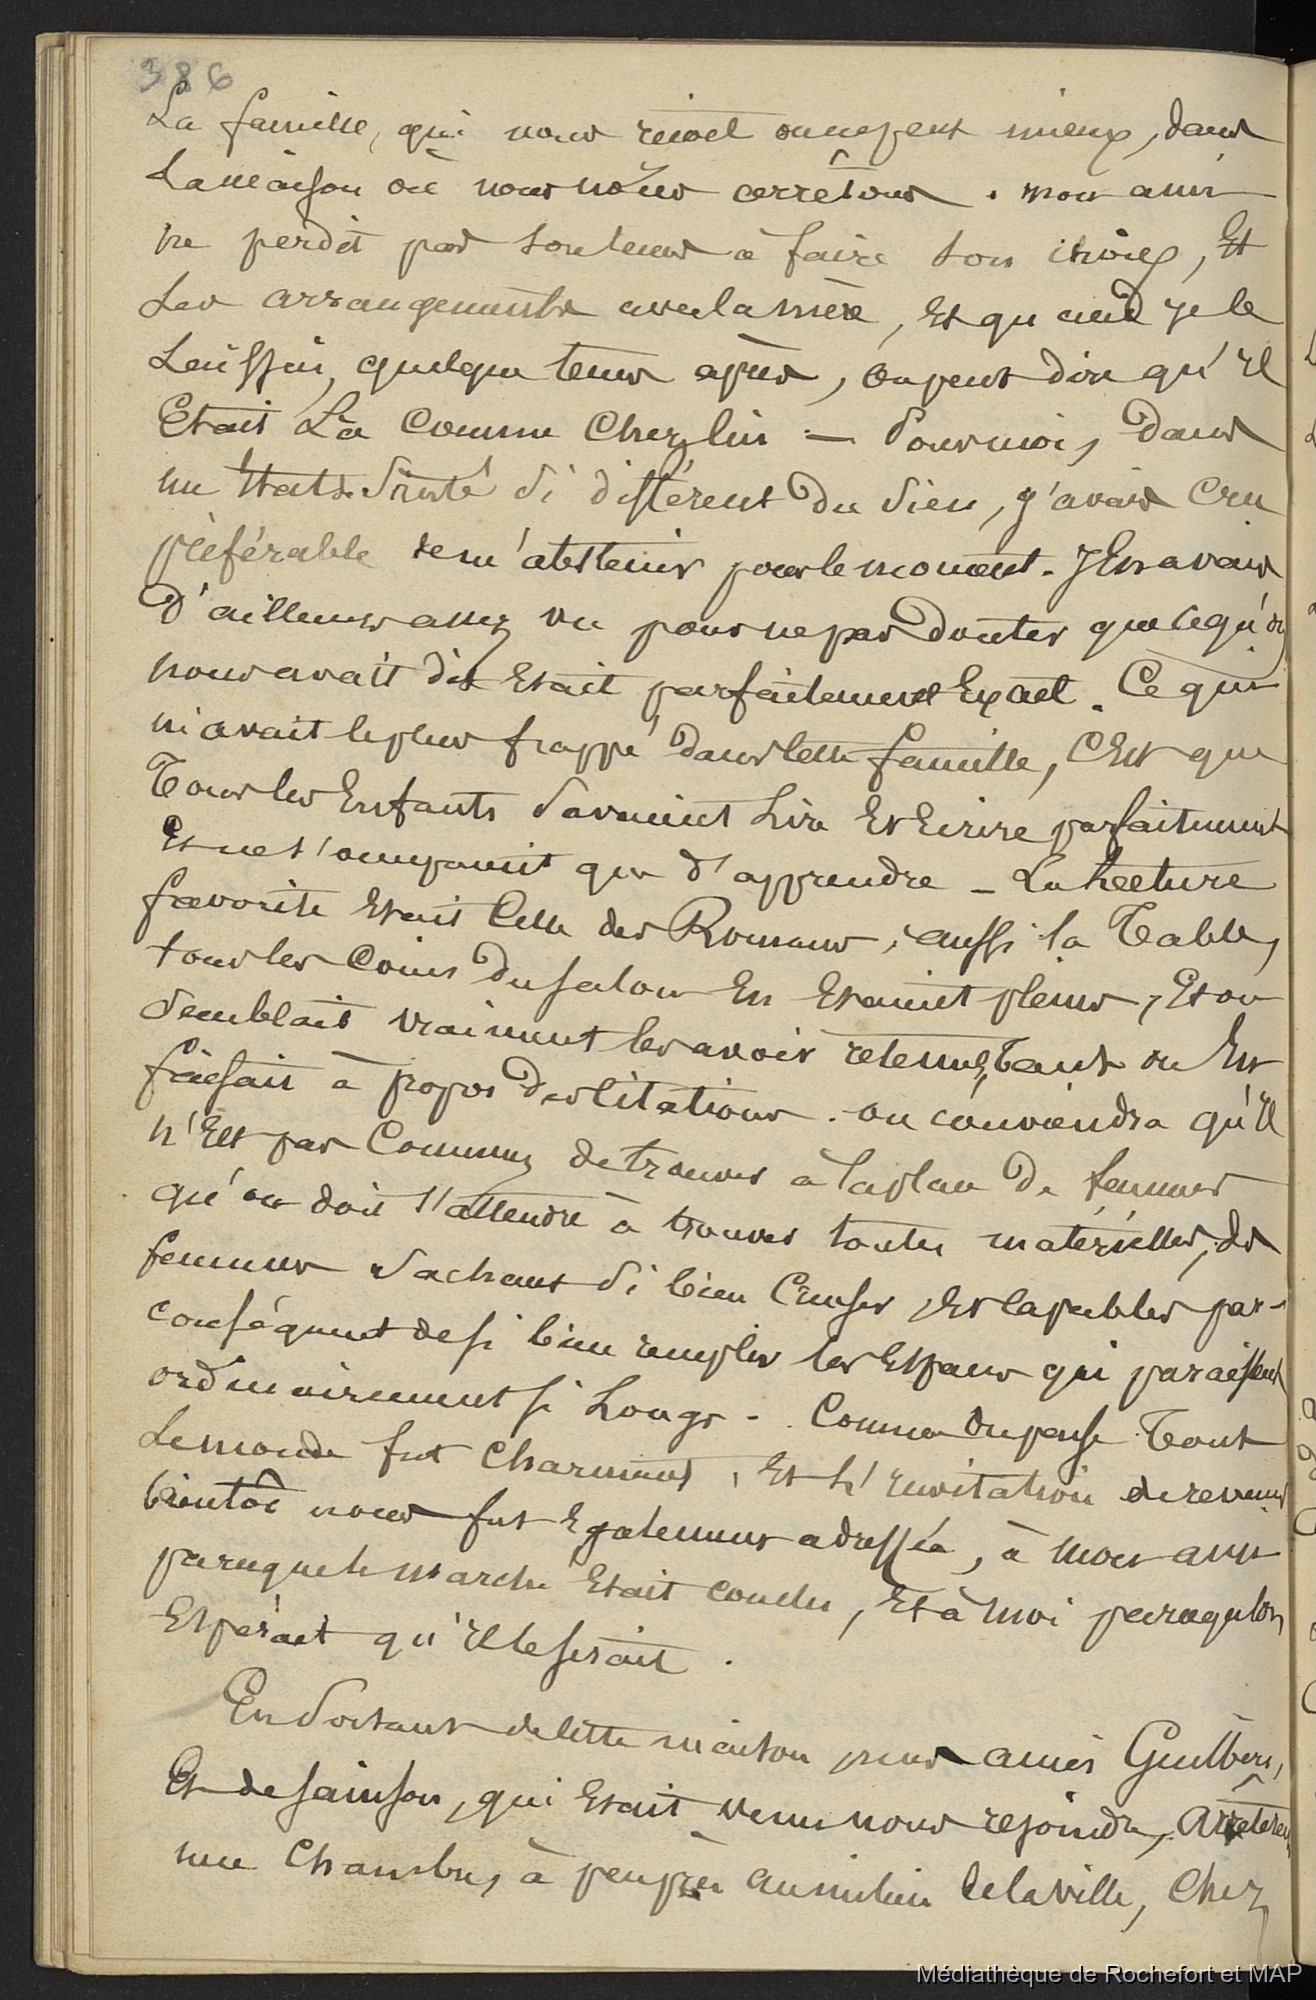 386
La famille, qui nous reçoit on ne peut mieux, dans
la maison où nous nous arrêtons. mon ami
ne perdit pas son tems à faire son choix, Et
Ses arrangements avec la mère, Et quand je le
Laissai, quelque tems après, on peut dire qu'il
Etait Là comme chez lui — Pour moi, dans
un Etat de Santé Si différent du Sien, j'avais Cru
préférable de m'abstenir pour le moment. J'En avais
D'ailleurs assez vu pour ne pas Douter que ce qu'on
nous avait dit Etait parfaitement Exact. Ce qui
m'avait le plus frappé dans cette famille, C'Est que
Tous les Enfants Savaient Lire Et Ecrire parfaitement
Et ne s'occupaient que d'apprendre — La Lecture
favorite Etait Celle des Romans; aussi la Table,
tous les Coins Du salon En Etaient pleins, Et on
Semblait vraiment les avoir retenus, tant on En
faisait à propos Des Citations. on conviendra qu'Il
n'Est pas Commun de trouver à la place De femmes
qu'on doit s'attendre à trouver toutes matérielles, des
femmes Sachant Si bien Causer, Et capables par-
conséquent de si bien remplir les Espaces qui paraissent
ordinairement si Longs. Comme on pense Tout
Le monde fut Charmant, Et L'invitation de revenir
bientôt nous fut Egalement adressée, à mon ami
parce que le marché Etait conclu, Et à moi parce qu'on
Espérait qu'Il le serait.
En Sortant de cette maison mes amis Guilbert,
Et de Sainson, qui Etait venu nous rejoindre, Arrêtèrent
une Chambre, à peu près au milieu de la ville, Chez
Médiathèque de Rochefort et MAP